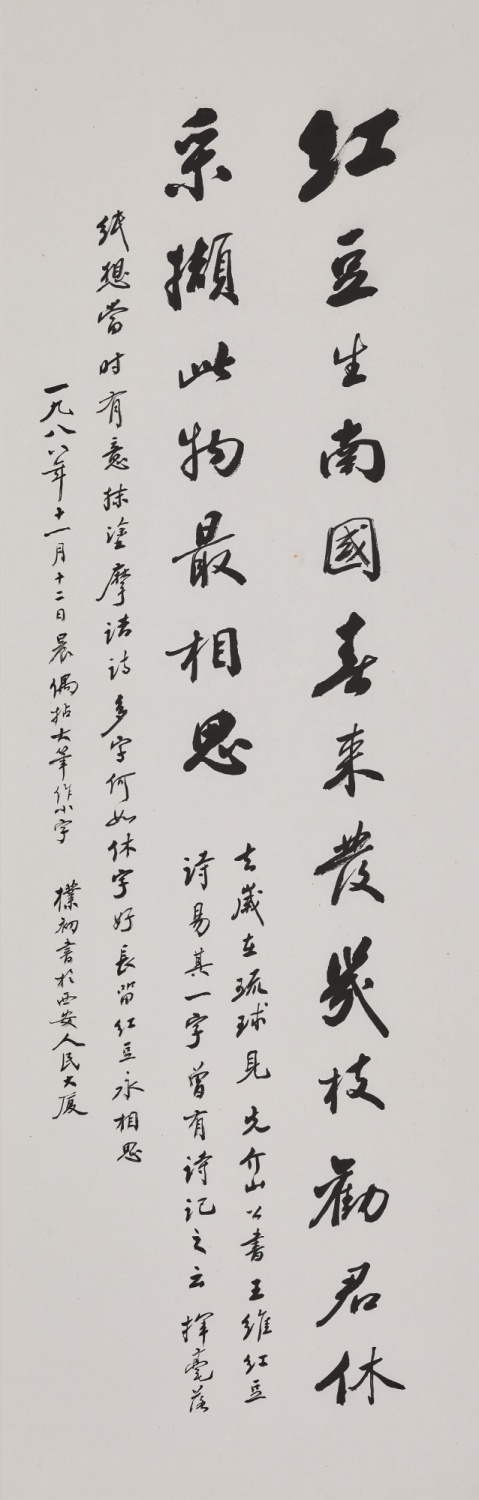 紅豆生南國春來發幾枝勸君休
采擷此物最相思
去歲在琉球見先介山公書王維紅豆
詩易其一字曾有詩記之云揮毫落
紙想當時有意抹塗摩詰詩多字何如休字好長留紅豆永相思
一九八八年十一月十二日晨偶拈大筆作小字 樸初書於西安人民大厦